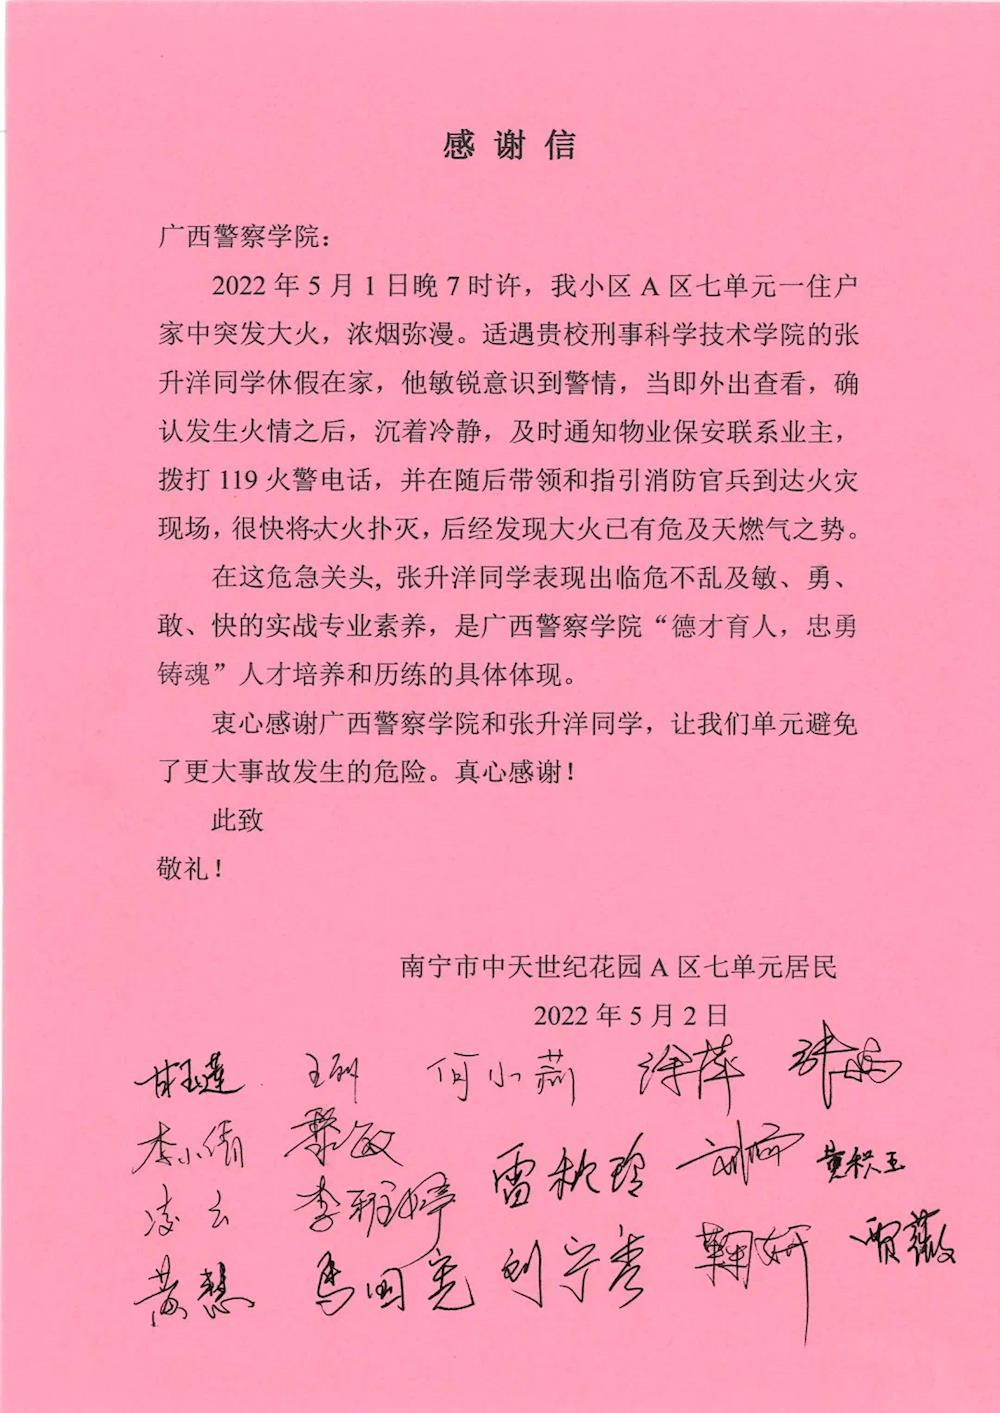 感谢信
广西警察学院：
2022年5月1日晚7时许，我小区A区七单元一住户
家中突发大火，浓烟弥漫。适遇贵校刑事科学技术学院的张
升洋同学休假在家，他敏锐意识到警情，当即外出查看，确
认发生火情之后，沉着冷静，及时通知物业保安联系业主，
拨打119火警电话，并在随后带领和指引消防官兵到达火灾
现场，很快将大火扑灭，后经发现大火已有危及天燃气之势。
在这危急关头，张升洋同学表现出临危不乱及敏、勇、
敢、快的实战专业素养，是广西警察学院“德才育人，忠勇
铸魂”人才培养和历练的具体体现。
衷心感谢广西警察学院和张升洋同学，让我们单元避免
了更大事故发生的危险。真心感谢！
此致
敬礼！
南宁市中天世纪花园A区七单元居民
2022年5月2日
甘玉莲 何小莉 涂萍
李小倩 黎敏 雷秋玲
凌云 李雅婷
黄慧 马国亮 刘宁秀 鞠妍 贾薇